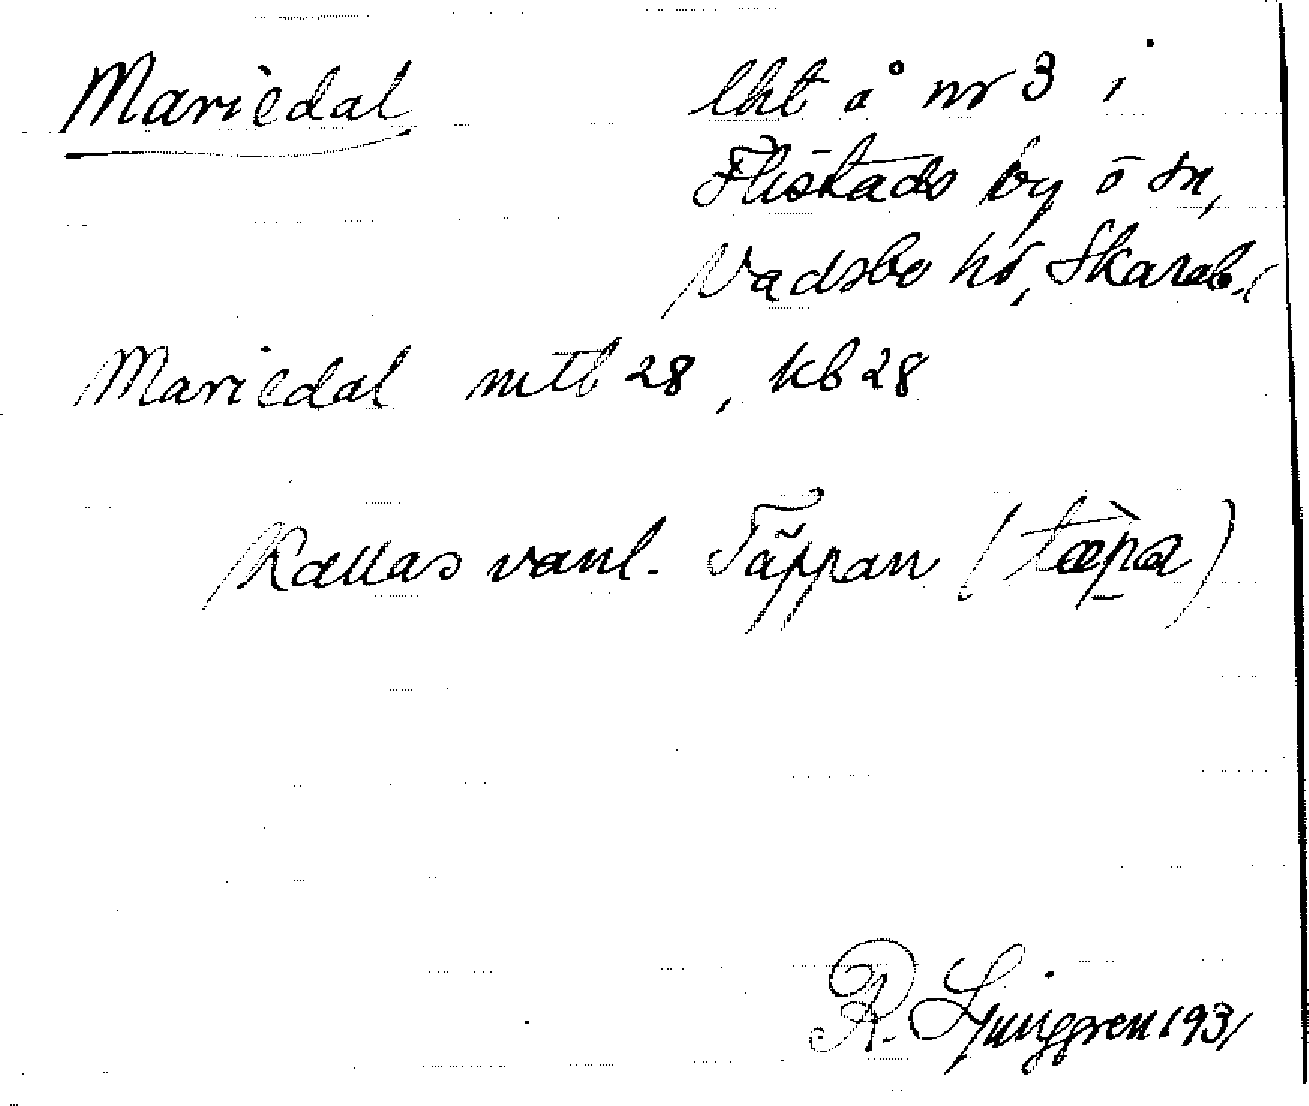 Mariedal lht å nr 3 i
Flistads by o sn,
Vadsbo hd, Skarab.l
Mariedal mtb 28, kb 28
Kallas vanl. Täppan (tæ̀pa)
R. Ljunggren 1931